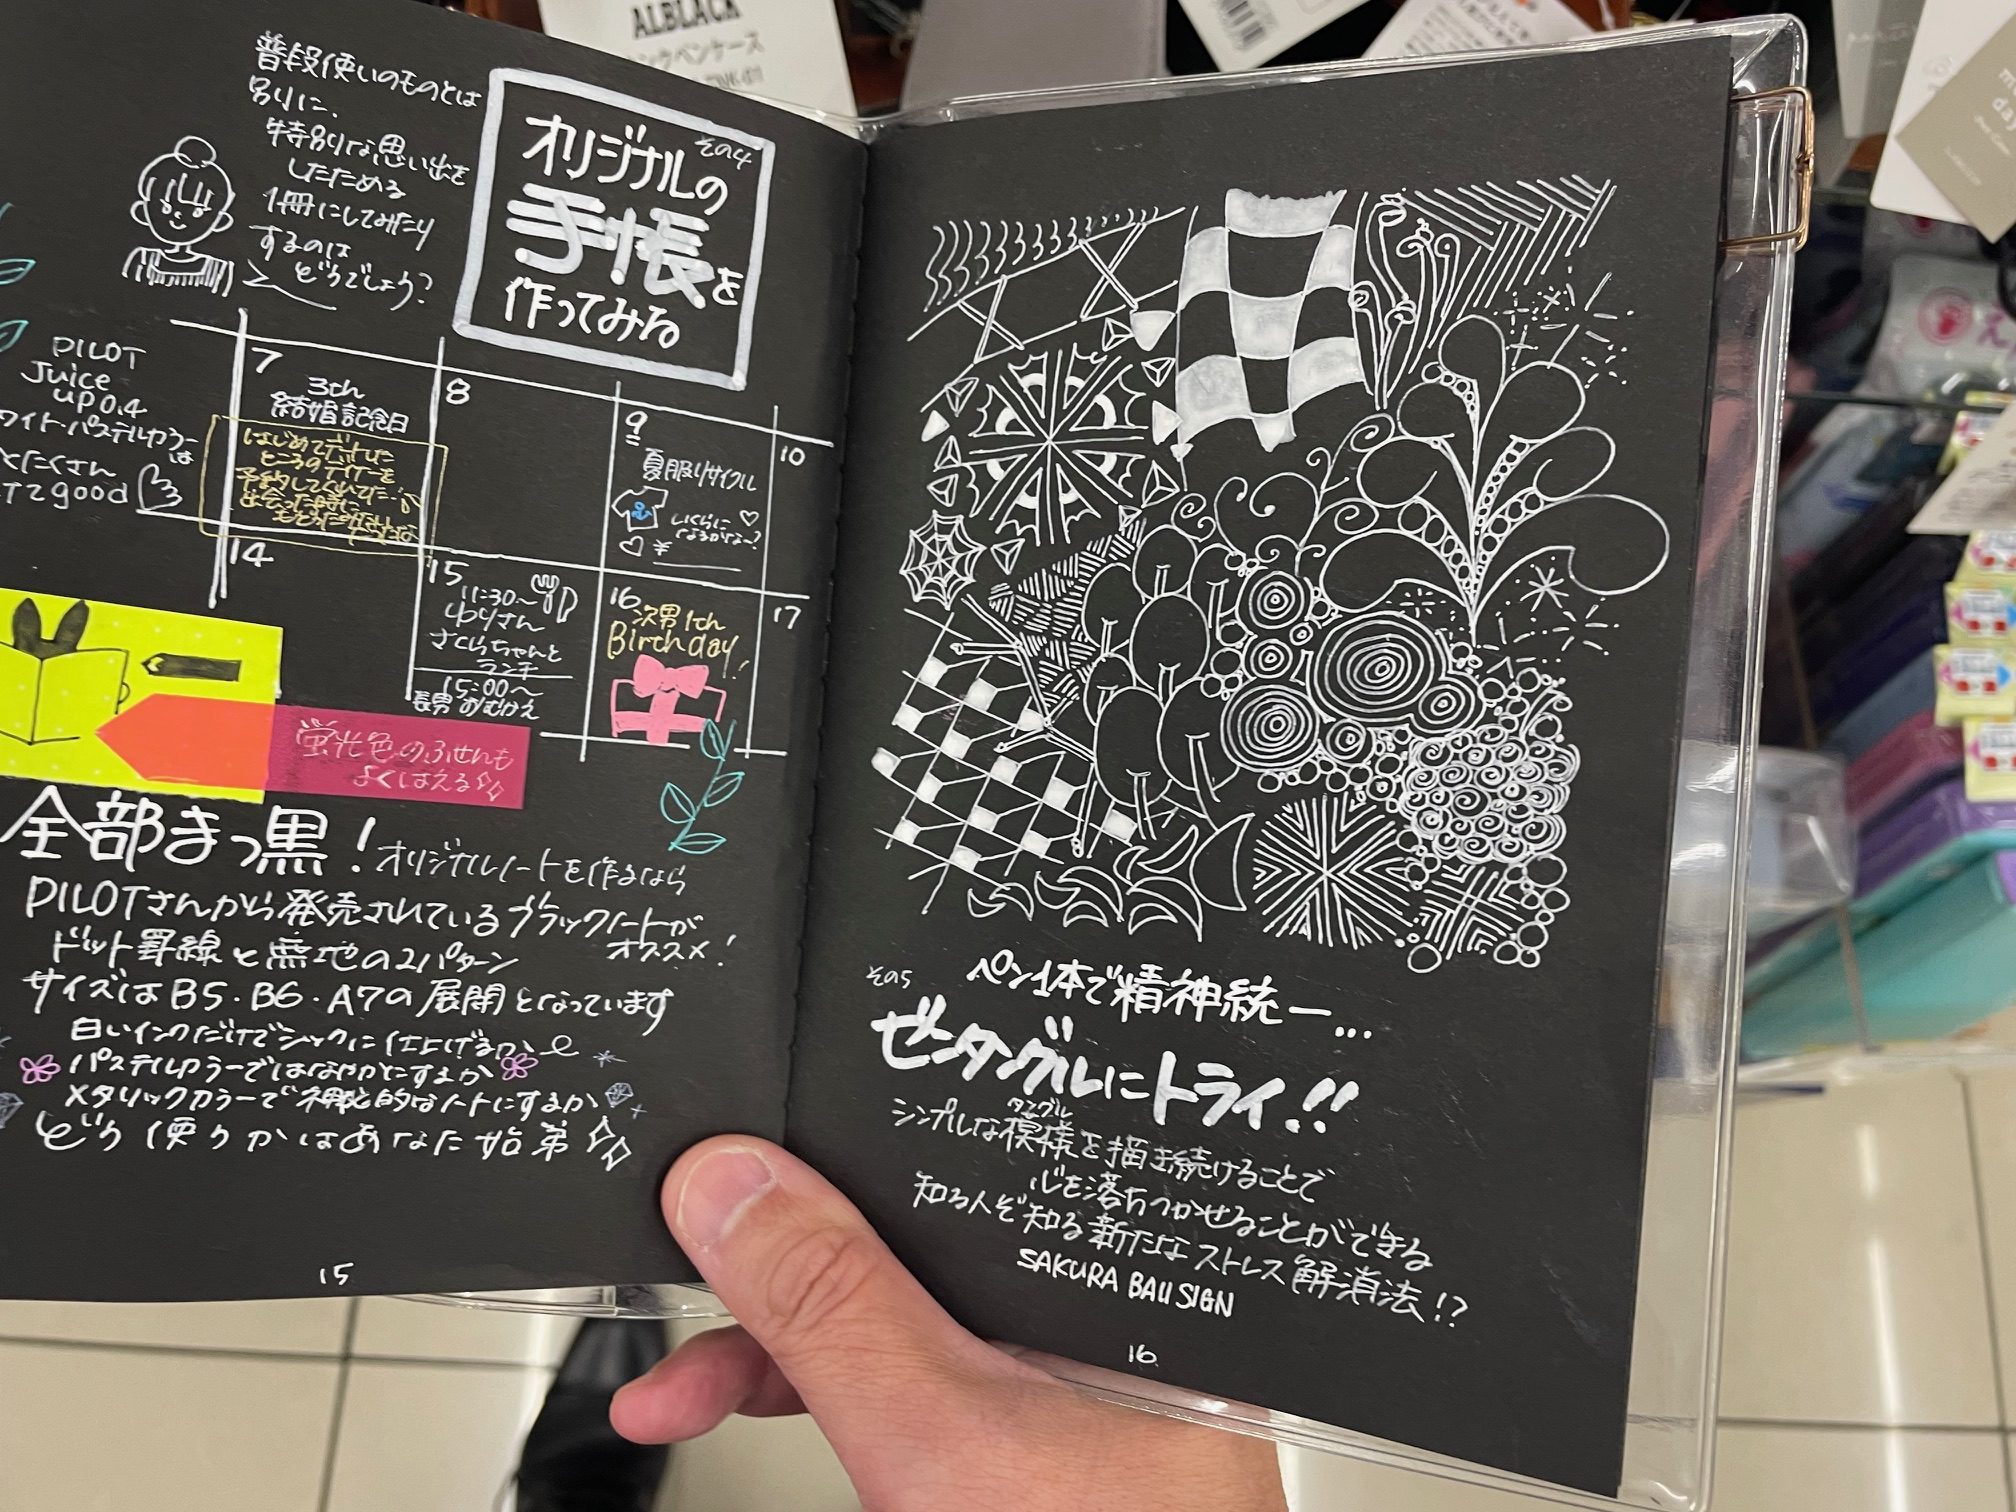 ALBLACK
ペンケース
普段使いのものとは
別に、
特別な思い出を
したためる
1冊にしてみたり
するのは
どうでしょう?
その4
オリジナルの
手帳を
作ってみる
PILOT
Juice
up 0.4
ホワイト・パステルカラーは
とにかく
good
7
3th
結婚記念日
はじめてデートした
ところのディナーを
予約してくれてた
8
9
夏服リサイクル
いくらに
なるかなー?
¥
10
14
15
11:30~
ゆりさん
さくらちゃんと
ランチ
15:00~
長男おむかえ
16
次男1th
Birthday!
17
蛍光色のふせんも
よくはえる
全部まっ黒!オリジナルノートを作るなら
PILOTさんから発売されているブラックノートが
オススメ!
ドット罫線と無地の2パターン
サイズはB5・B6・A7の展開となっています
白いインクだけでシックに仕上げるか
パステルカラーではなやかにするか
メタリックカラーで神秘的なノートにするか
どう使うかはあなた次第
15
その5
ペン1本で精神統一...
ゼンタングルにトライ!!
タングル
シンプルな模様を描き続けることで
心を落ちつかせることができる
知る人ぞ知る新たなストレス解消法!?
SAKURA BALL SIGN
16